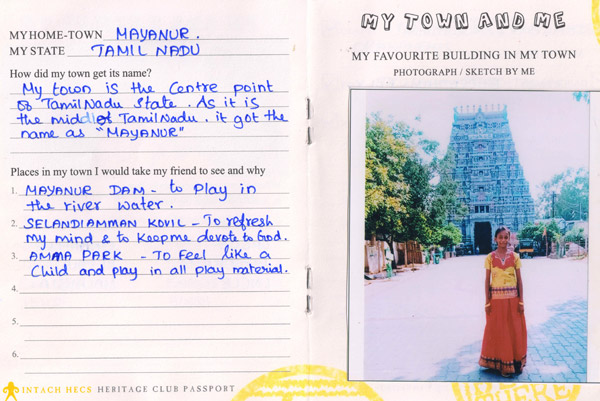 MY HOME-TOWN MAYANUR.
MY STATE TAMIL NADU
How did my town get its name?
My town is the Centre point
of TamilNadu State. As it is
the middle of TamilNadu. it got the
name as "MAYANUR"
Places in my town I would take my friend to see and why
1. MAYANUR DAM - to Play in
the river water.
2. SELANDIAMMAN KOVIL - To refresh
my mind & to keep me devote to God.
3. AMMA PARK - To Feel like a
Child and play in all play material.
4.
5.
6.
INTACH HECS HERITAGE CLUB PASSPORT
MY TOWN AND ME
MY FAVOURITE BUILDING IN MY TOWN
PHOTOGRAPH / SKETCH BY ME